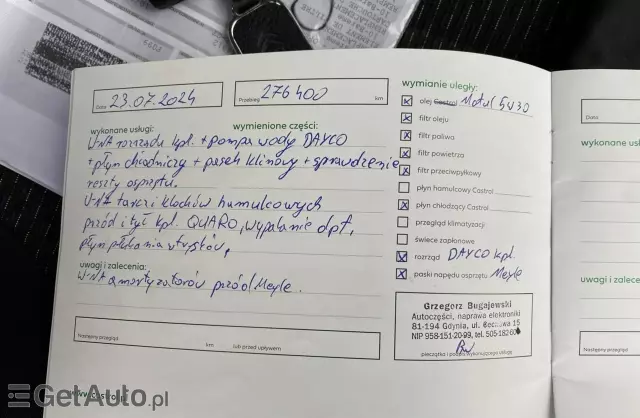 Data 23.07.2024
Przebieg 276400 km
wykonane usługi: wymienione części:
W-NA rozrządu kpl. + pompa wody DAYCO
+ płyn chłodniczy + pasek klinowy + sprawdzenie
reszty osprzętu.
W-NA tarcz i klocków hamulcowych
przód i tył kpl. QUARO, wypalanie dpf,
płyn płukania wtrysków,
uwagi i zalecenia:
W-NA amortyzatorów przód Meyle.
Następny przegląd km lub przed upływem
wymianie uległy:
olej Castrol Motul 5W30
filtr oleju
filtr paliwa
filtr powietrza
filtr przeciwpyłkowy
płyn hamulcowy Castrol
płyn chłodzący Castrol
przegląd klimatyzacji
świece zapłonowe
rozrząd DAYCO kpl.
paski napędu osprzętu Meyle
Grzegorz Bugajewski
Autoczęści, naprawa elektroniki
81-194 Gdynia, ul. 15
NIP 958-151-20-99, tel. 505-182-60
pieczątka i podpis wykonującego usługę
Data
wykonane usł
uwagi i zaleceni
Następny przegląd
GetAuto.pl